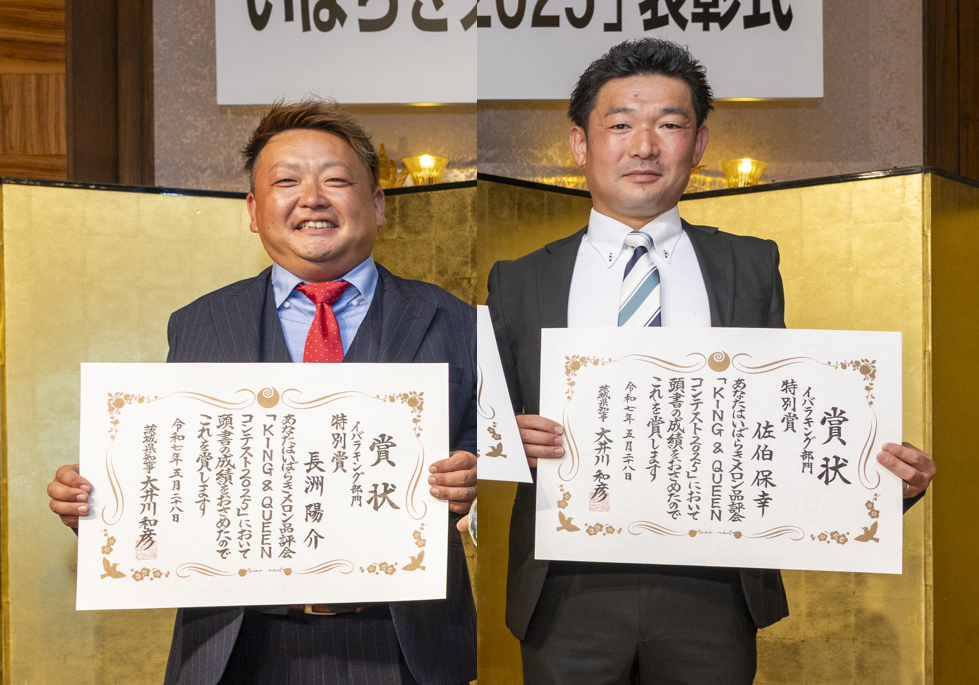 いばらき
2025」表彰式
賞状
イバラキング部門
特別賞
長洲陽介
あなたはいばらきメロン品評会
「KING & QUEEN
コンテスト2025」において
頭書の成績をおさめたので
これを賞します
令和七年五月二十八日
茨城県知事 大井川和彦
賞状
イバラキング部門
特別賞
佐伯保幸
あなたはいばらきメロン品評会
「KING & QUEEN
コンテスト2025」において
頭書の成績をおさめたので
これを賞します
令和七年五月二十八日
茨城県知事 大井川和彦